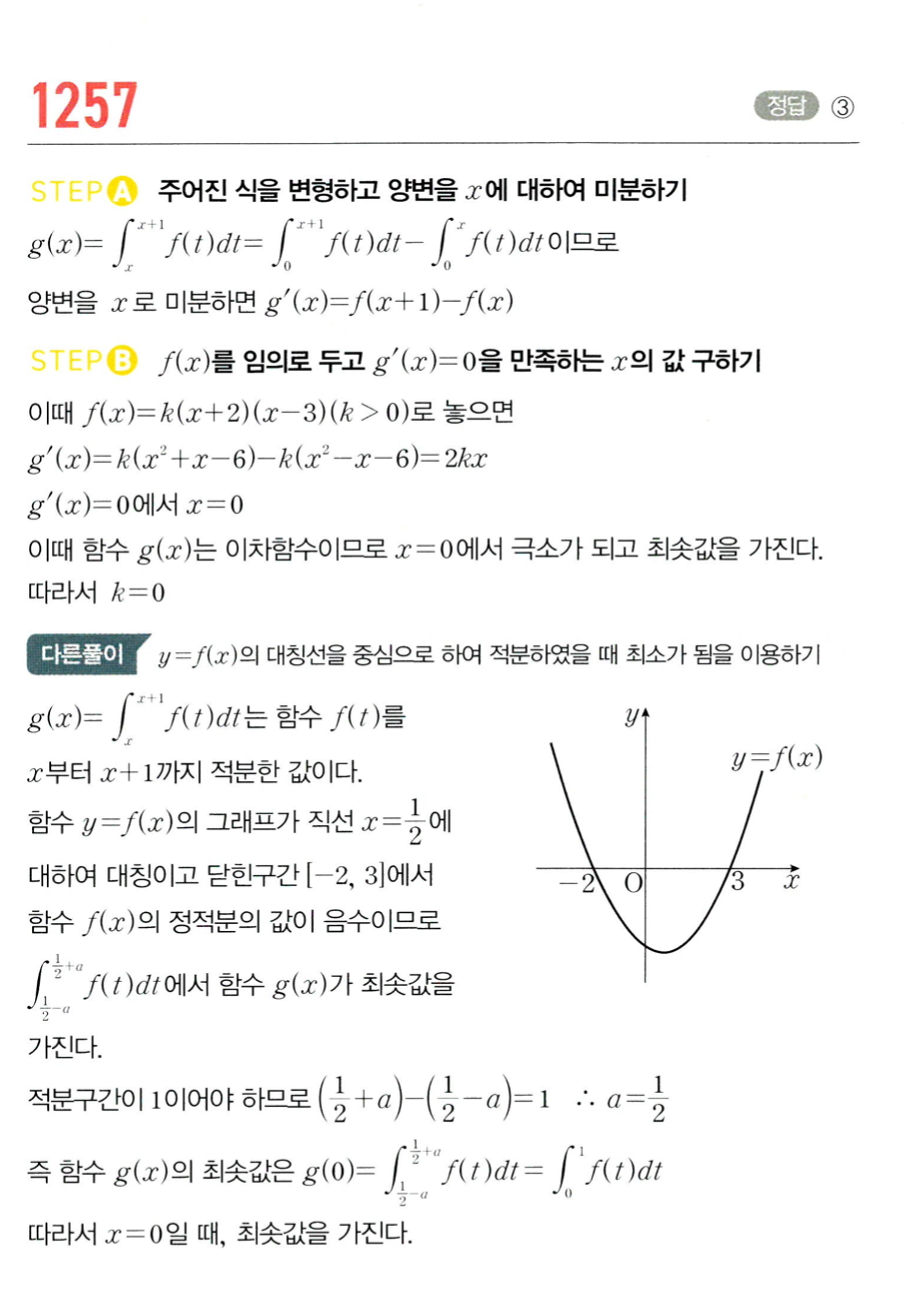 1257
정답 ③
STEP A 주어진 식을 변형하고 양변을 x에 대하여 미분하기
g(x)=∫ₓˣ⁺¹ f(t)dt=∫₀ˣ⁺¹ f(t)dt−∫₀ˣ f(t)dt이므로
양변을 x로 미분하면 g′(x)=f(x+1)−f(x)
STEP B f(x)를 임의로 두고 g′(x)=0을 만족하는 x의 값 구하기
이때 f(x)=k(x+2)(x−3)(k>0)로 놓으면
g′(x)=k(x²+x−6)−k(x²−x−6)=2kx
g′(x)=0에서 x=0
이때 함수 g(x)는 이차함수이므로 x=0에서 극소가 되고 최솟값을 가진다.
따라서 k=0
다른풀이 y=f(x)의 대칭선을 중심으로 하여 적분하였을 때 최소가 됨을 이용하기
g(x)=∫ₓˣ⁺¹ f(t)dt는 함수 f(t)를
x부터 x+1까지 적분한 값이다.
함수 y=f(x)의 그래프가 직선 x=1/2에
대하여 대칭이고 닫힌구간 [−2, 3]에서
함수 f(x)의 정적분의 값이 음수이므로
∫_{1/2−a}^{1/2+a} f(t)dt에서 함수 g(x)가 최솟값을
가진다.
y
y=f(x)
−2 O 3 x
적분구간이 1이어야 하므로 (1/2+a)−(1/2−a)=1 ∴ a=1/2
즉 함수 g(x)의 최솟값은 g(0)=∫_{1/2−a}^{1/2+a} f(t)dt=∫₀¹ f(t)dt
따라서 x=0일 때, 최솟값을 가진다.